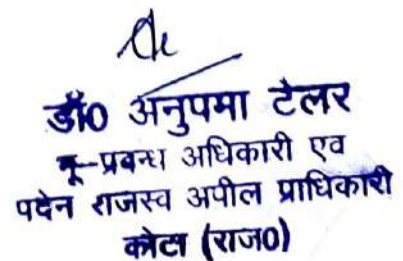 डॉ0 अनुपमा टेलर
भू–प्रबन्ध अधिकारी एव
पदेन राजस्व अपील प्राधिकारी
कोटा (राज0)